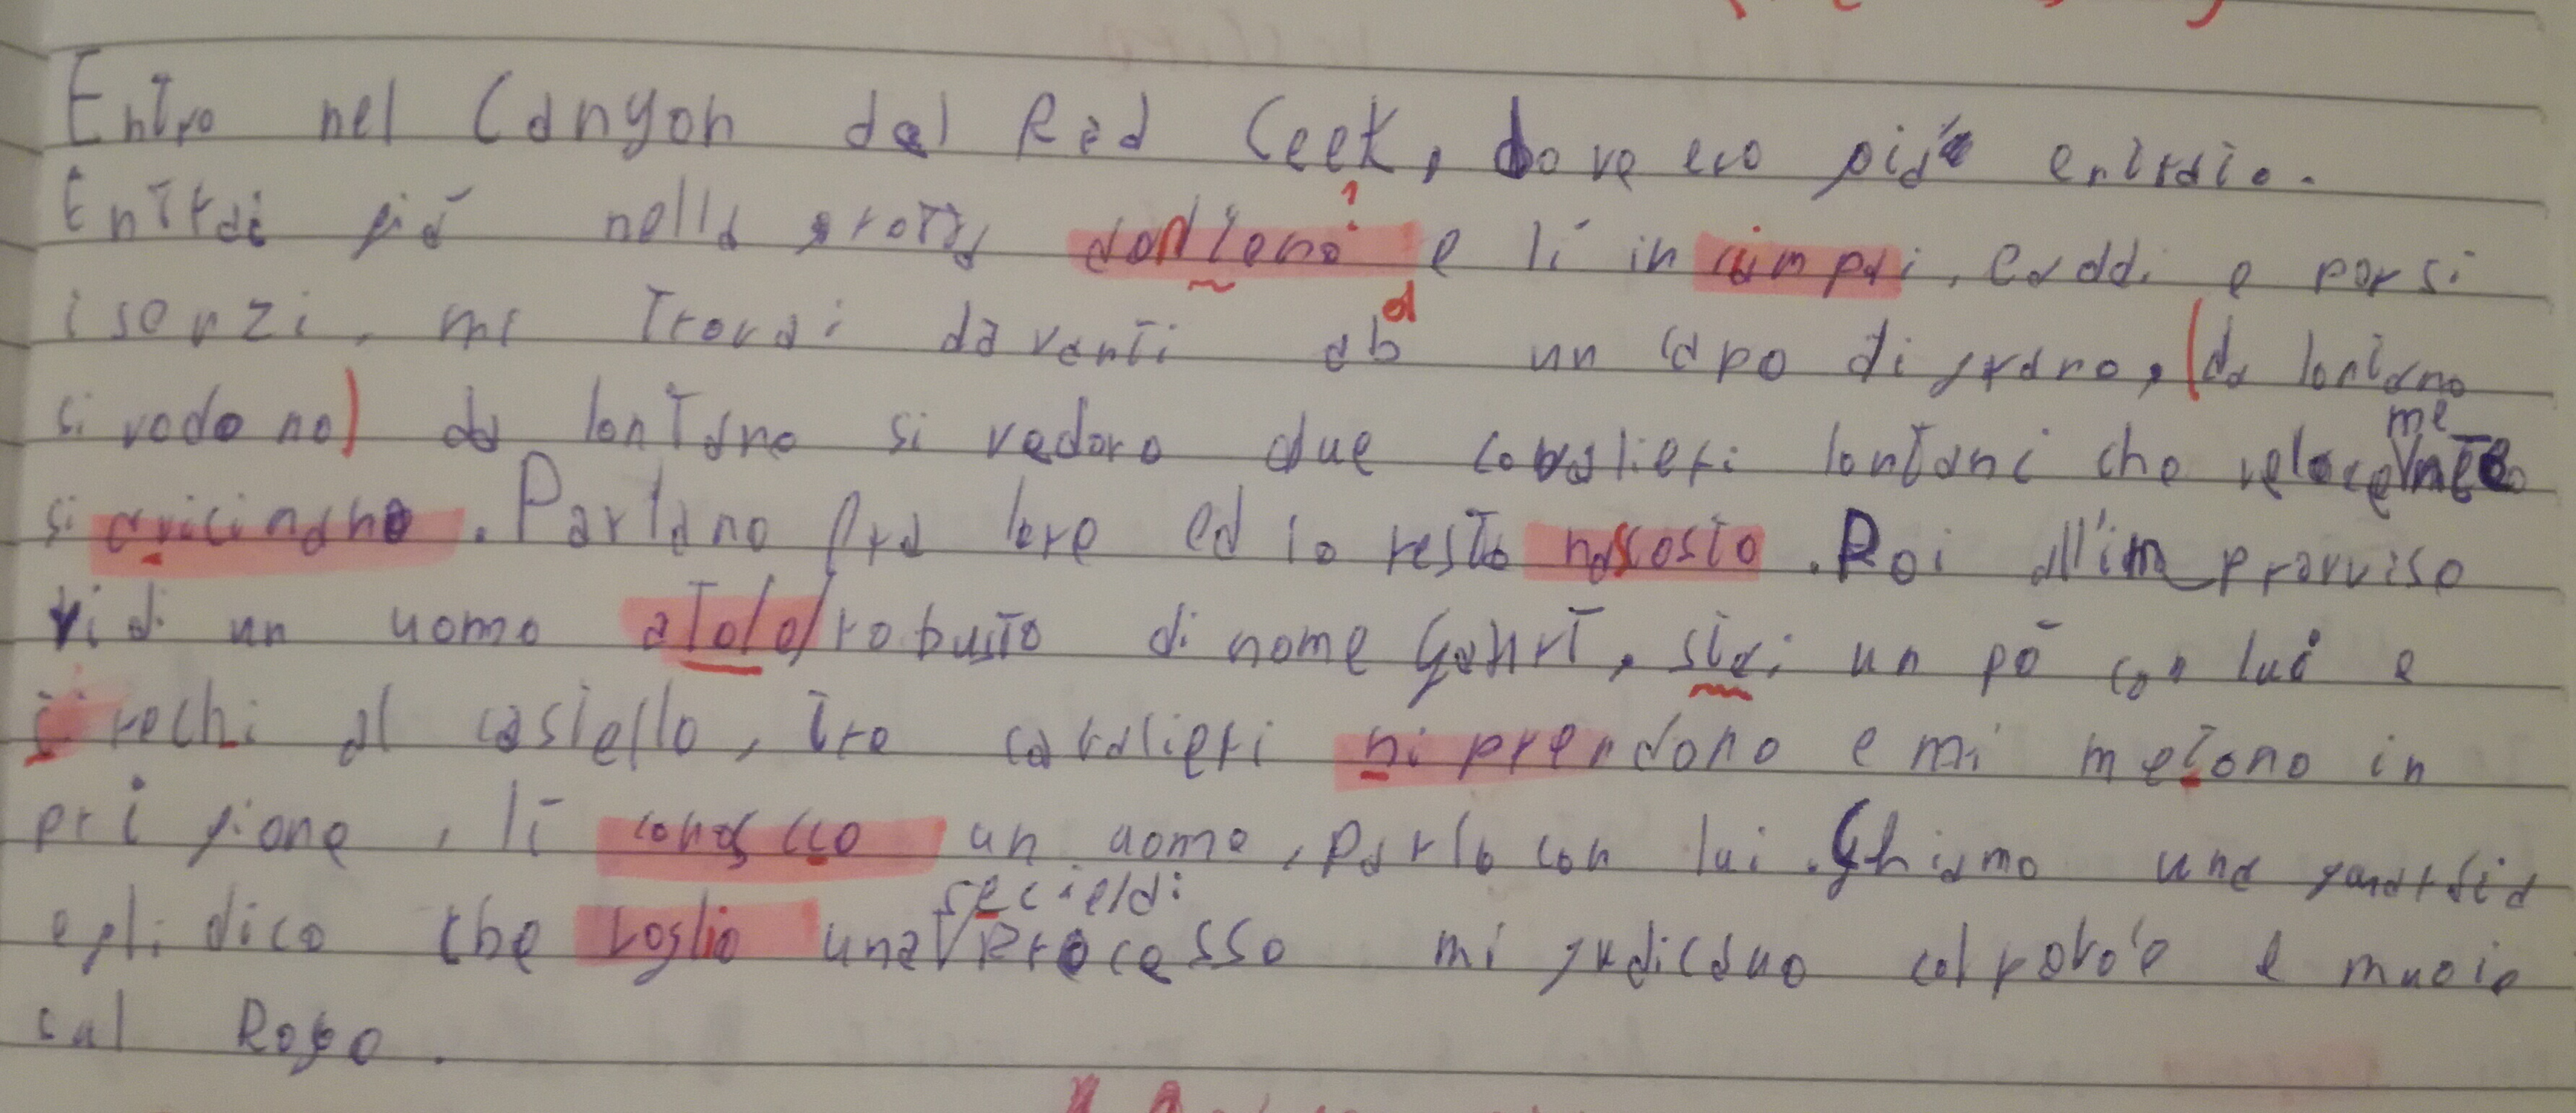 Entro nel Canyon del Red Ceek, dove ero già entrato.
Entrai già nella grotta e lì in ciampai, caddi e persi
i senzi, mi trovai davanti ab d un capo di grano, (da lontano
si vedono) da lontano si vedono due cavalieri lontani che velocemente
si avicinano. Parlano fra loro ed io resto nascosto. Poi all'improvviso
vidi un uomo atolo/robusto di nome Gohrt, stai un pò con lui e
rechi al castello, tre cavalieri ni prendono e mi metono in
prigione, lì conoscco un uomo, parlo con lui. Ghiamo una guardia
e gli dico che voglio una processo mi gudicano e muoio
sul Rogo.